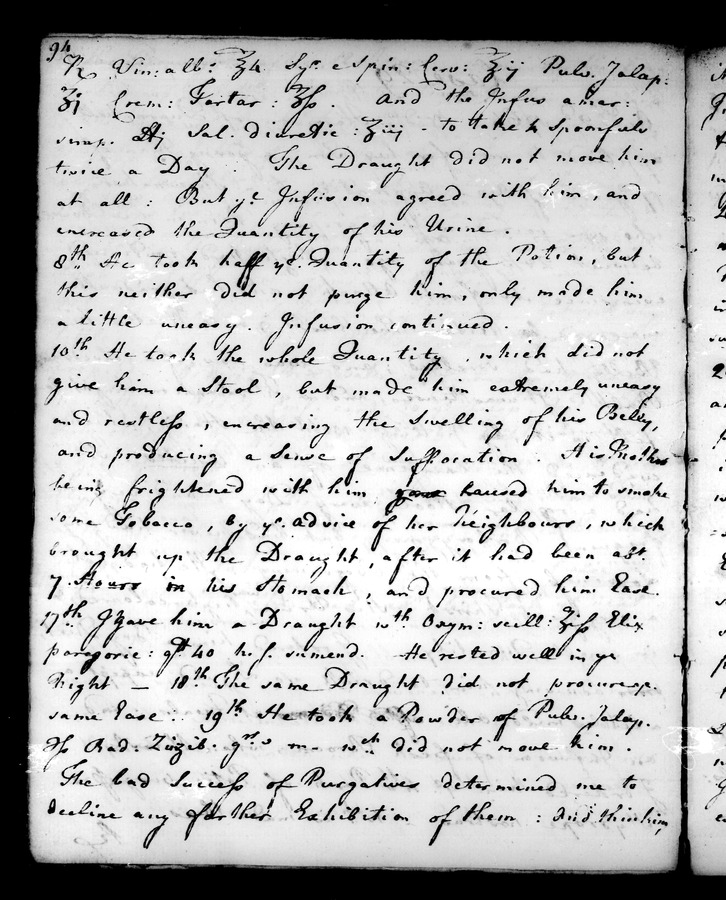 94
℞ Vin: alb: ℥4 Syr. e Spin: Cerv: ℥ij Pulv. Jalap:
ʒj Crem: Tartar: ʒss. And the Infus amar:
simp. ℔j Sal. diuretic: ʒiij - to take 4 spoonfuls
twice a Day. The Draught did not move him
at all: But ye Infusion agreed with him, and
encreased the Quantity of his Urine.
8th He took half ye. Quantity of the Potion, but
this neither did not purge him, only made him
a little uneasy. Infusion continued.
10th He took the whole Quantity, which did not
give him a Stool, but made him extremely uneasy
and restless, encreasing the Swelling of his Belly,
and producing a Sense of Suffocation. His Mother
being frightened with him caused him to smoke
some Tobacco, by ye. advice of her Neighbours, which
brought up the Draught, after it had been abt.
7 Hours in his Stomach, and procured him Ease.
17th I gave him a Draught wth Oxym: scill: ʒiss Elix
paregoric: gtt 40 h.s. sumend. He rested well in ye
Night — 18th The same Draught did not procure ye.
same Ease. 19th He took a Powder of Pulv. Jalap.
Rad. Zinzib. wch did not move him.
The bad Success of Purgatives determined me to
decline any farther Exhibition of them: And thinking